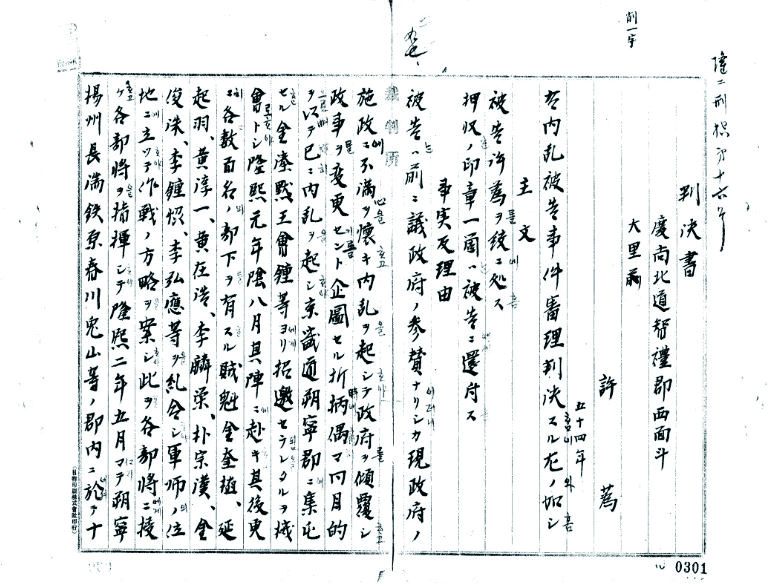 隆二刑提第十六号
削一字
判決書
慶尚北道智禮郡西面斗
大里
許 蔿
五十四年
右内乱被告事件審理判決スル左ノ如シ
主文
被告許蔿ヲ絞ニ処ス
押収ノ印章一箇ハ被告ニ還付ス
事実及理由
被告ハ前ニ議政府ノ参賛ナリシカ現政府ノ
施政ニ不満ヲ懐キ内乱ヲ起シテ政府ヲ傾覆シ
政事ヲ変更セント企圖セル折柄偶マ同目的
ヲ以テ已ニ内乱ヲ起シ京畿道朔寧郡ニ集屯
セル金湊黙王會鍾等ヨリ招邀セラレタルヲ機
會トシ隆熙元年陰八月其陣ニ赴キ其後更
ニ各数百名ノ部下ヲ有スル賊魁金奎植、延
起羽、黄淳一、黄在浩、李麟榮、朴宗漢、金
俊洙、李鍾焏、李弘應等ヲ糾合シ軍師ノ位
地ニ立ツテ作戦ノ方略ヲ案シ此ヲ各部将ニ授
ケ各部将ヲ指揮シテ隆熙二年五月マテ朔寧
揚州長湍鉄原春川兎山等ノ郡内ニ於テ十
裁判所
0301